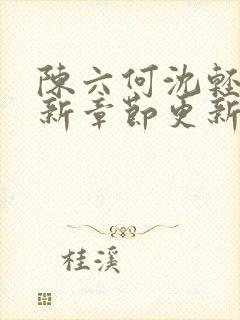 陳六何沈輕
新章節更新
桂溪